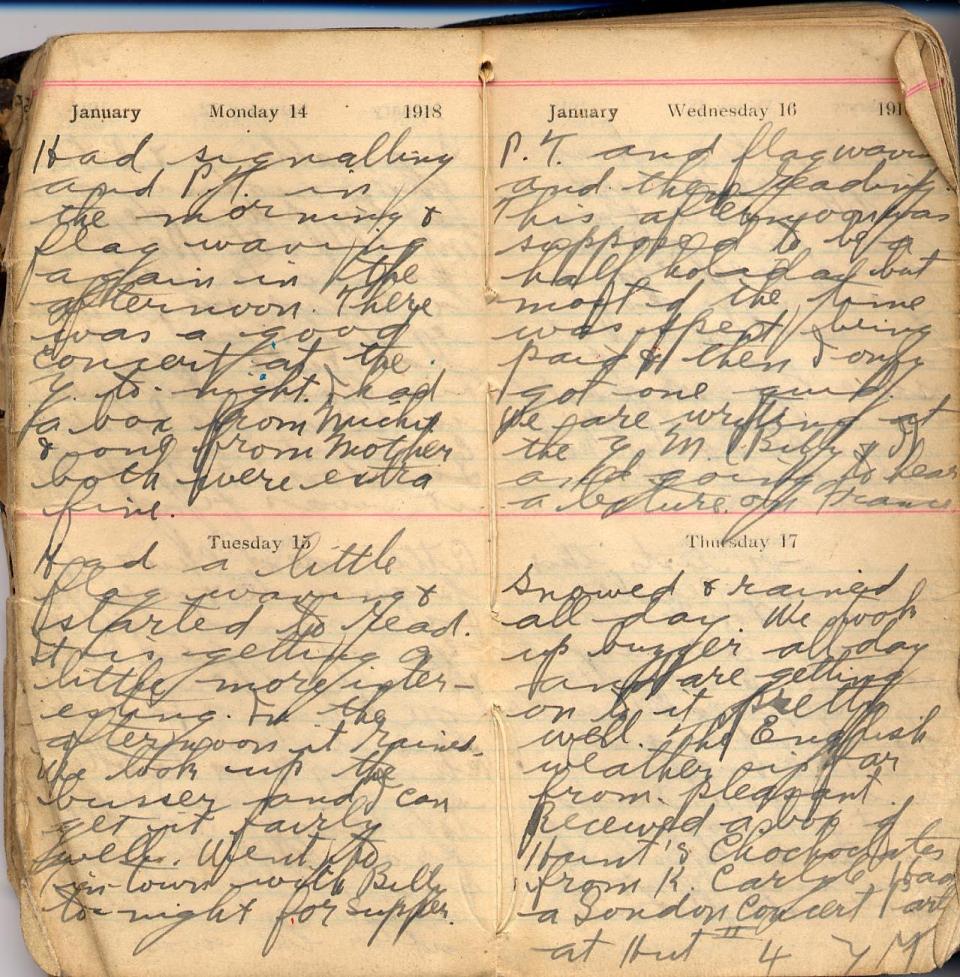 January Monday 14 1918
Had signalling
and P.T. in
the morning &
flag waving
again in the
afternoon. There
was a good
concert at the
Y. to-night. I had
a box from
& one from Mother
both were extra
fine.
Tuesday 15
Had a little
flag waving &
started to read.
It is getting a
little more inter-
esting. In the
afternoon it rained.
We took up the
busser and I can
get it fairly
well. Went
in town with Billy
to-night for supper.
January Wednesday 16 191
P.T. and flag waving
and then reading.
This afternoon was
supposed to be a
half holiday but
most of the time
was spent being
paid & then I only
got one quid.
We are writing at
the Y M. Billy & I
and going to hear
a lecture on France.
Thursday 17
Snowed & rained
all day. We took
up buzzer all day
and are getting
on to it pretty
well. The English
weather is far
from pleasant.
Received a box of
Hunt's Chochoclates
from K. Carlyle. Had
a London Concert Part
at Hut II 4 Y M